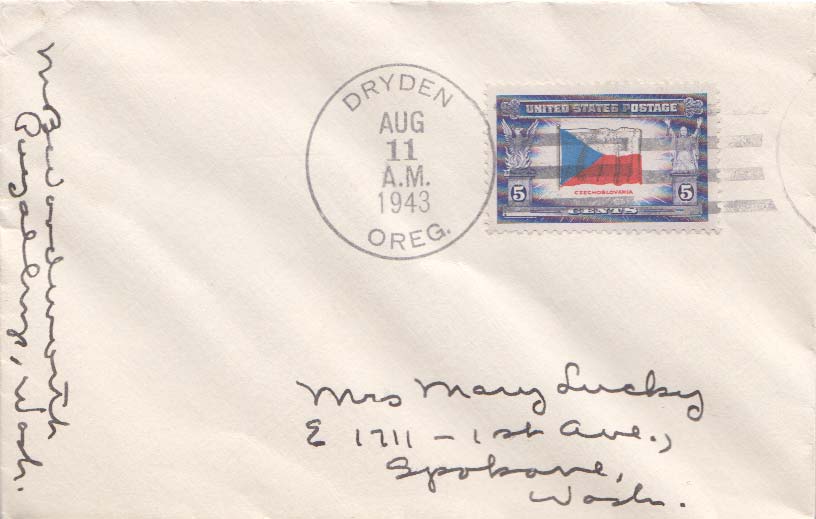 M Bu Wadsworth
Puyallup, Wash.
DRYDEN
AUG
11
A.M.
1943
OREG.
UNITED STATES POSTAGE
CZECHOSLOVAKIA
5 5
CENTS
Mrs Mary Lucky
E 1711 - 1st Ave.,
Spokane,
Wash.